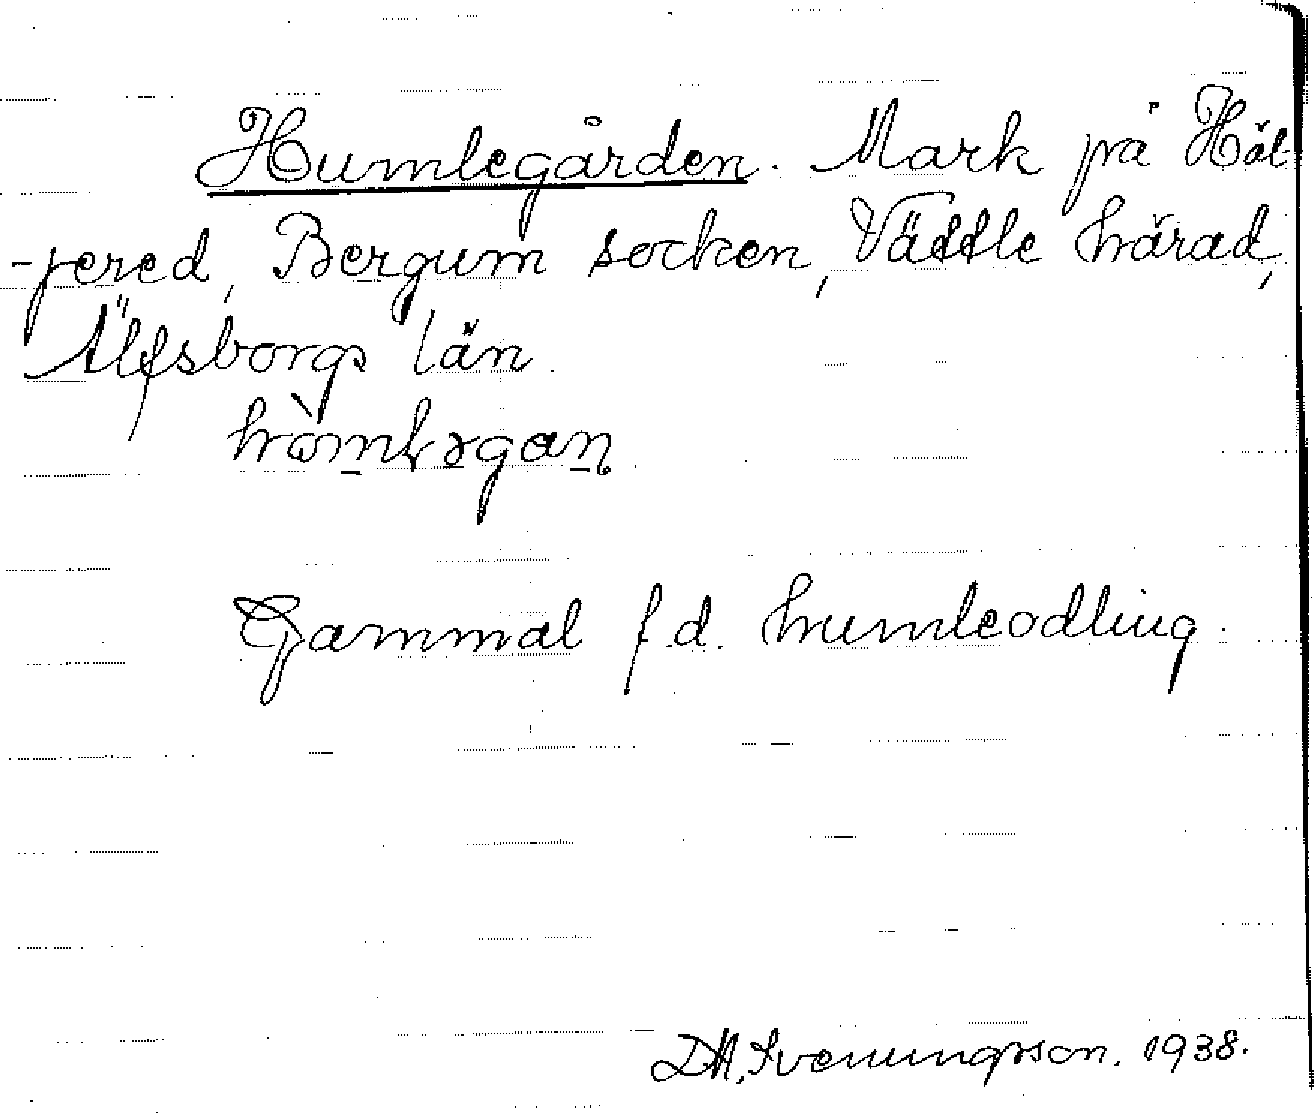 Humlegården. Mark på Häl
-pered, Bergum socken, Vättle härad,
Älfsborgs län.
hòmləgan
Gammal f.d. humleodling.
D.M. Svenungsson. 1938.